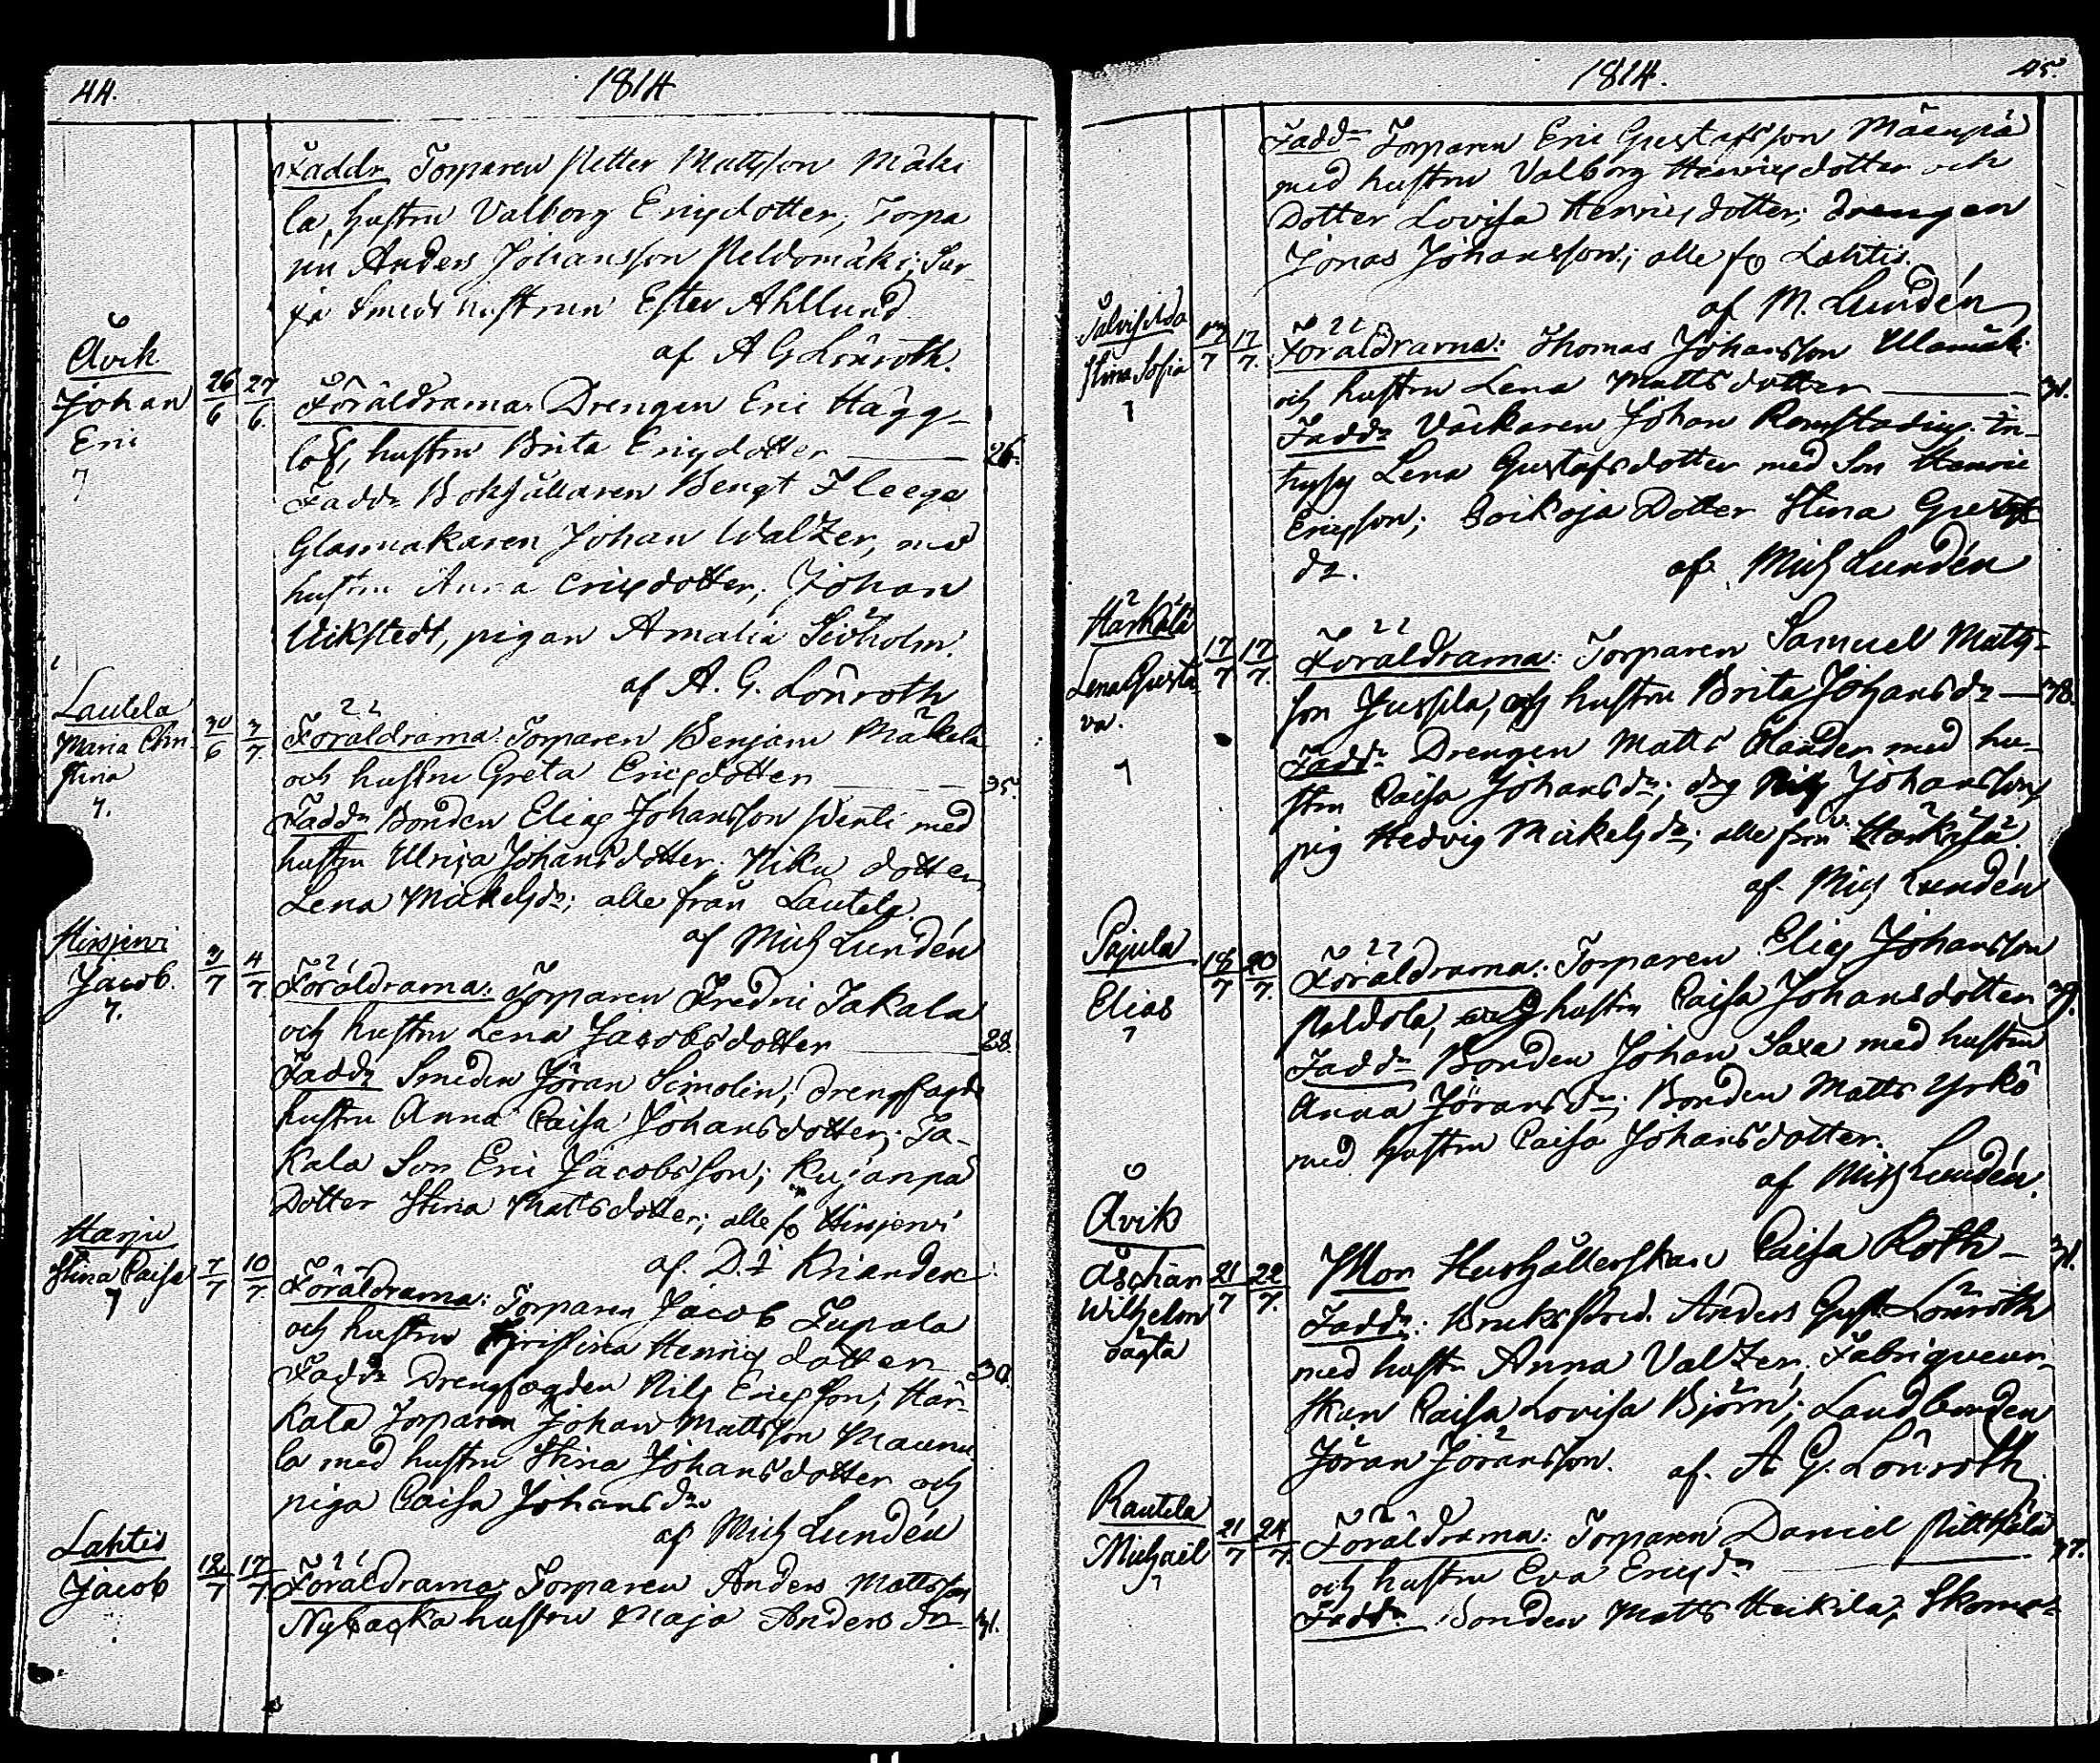 44.
1814
Faddr Torparen Petter Mattsson Mäki
la, hustru Valborg Ericsdotter, Torpa
ren Anders Johansson Peldomäki; Sur
jä Smeds hustrun Ester Ahllund
af A G Lönroth.
Åvik
Johan
Eric
7
26/6 27/6
Föräldrarna: Drengen Eric Hägg-
löf, hustru Brita Ericsdotter 26.
Faddr Bokhållaren Bengt Fleege
Glasmakaren Johan Walzer, med
hustru Anna Ericsdotter; Johan
Vikstedt, pigan Amalia Sevholm.
af A. G. Lönroth
Lautela
Maria Chri
stina
7.
30/6 3/7
Föräldrarna: Torparen Benjam Mäkela
och hustru Greta Ericsdotter 35.
Faddr Bonden Elias Johansson Pertti med
hustru Ulrica Johansdotter; Niku dotter
Lena Mickelsdr; alle från Lautela.
af Mich Lundén
Hirsjervi
Jacob.
7.
3/7 4/7
Föräldrarna: Torparen Fredric Takala
och hustru Lena Jacobsdotter 28.
Faddr Smeden Jöran Limolin, Drengfogds
hustru Anna Caisa Johansdotter; Ta-
kala Son Eric Jacobsson; Kujanpää
Dotter Stina Mattsdotter; alle fr Hirsjervi
af D. F Kriander
Harju
Stina Caisa
7
7/7 10/7
Föräldrarna: Torparen Jacob Tupala
och hustru Christina Henricsdotter 30.
Faddr Drengfogden Nils Ericsson; Här-
kälä Torparen Johan Mattsson Maunu
la med hustru Stina Johansdotter och
piga Caisa Johansdr
af Mich Lundén
Lahtis
Jacob
12/7 17/7
Föräldrarna: Torparen Anders Mattsson
Nybacka hustru Maja Andersdr 31.
1814.
45.
Faddr Torparen Eric Gustafsson Mäenpää
med hustru Valborg Henricsdotter och
Dotter Lovisa Henricsdotter; drengen
Jonas Johansson; alle fr Lahtis.
af M. Lundén
Stina Sofia
7
17/7
Föräldrarna: Thomas Johansson Ulamäki
och hustru Lena Mattsdotter 31.
Faddr Väckaren Johan Romstadius In-
hyses Lena Gustafsdotter med Son Henric
Ericsson; Soikoja Dotter Stina Gustafs
dr. af Mich Lundén
Härkälä
Lena Gusta
va.
7
17/7 17/7
Föräldrarna: Torparen Samuel Matts-
son Jussila, och hustru Brita Johansdr 38.
Faddr Drengen Matts Elander med hu-
stru Caisa Johansdr; drg Nils Johansson,
pig Hedvig Mickelsdr; alle från Härkälä.
af Mich Lundén
Pajula
Elias
7
18/7 20/7
Föräldrarna: Torparen Elias Johansson
Peldola, och hustru Caisa Johansdotter 39.
Faddr Bonden Johan Saxa med hustru
Anna Göransdr; Bonden Matts Yrkö
med hustru Caisa Johansdotter.
af Mich Lundén.
Åvik
Wilhelm
oägta
21/7 22/7
Mor Hushållerskan Caisa Roth- 31.
Faddr: Brukspred. Anders Gust. Lönroth
med hustr Anna Valzer, Fabriqveur-
skan Caisa Lovisa Björn; Landbonden
Jöran Jöransson. af. A G. Lönroth
Rautela
Michaël
7
21/7 24/7
Föräldrarna: Torparen Daniel Pillkälä
och hustru Eva Ericsdr 37.
Faddr. Bonden Matts Heikilä, Skoma-